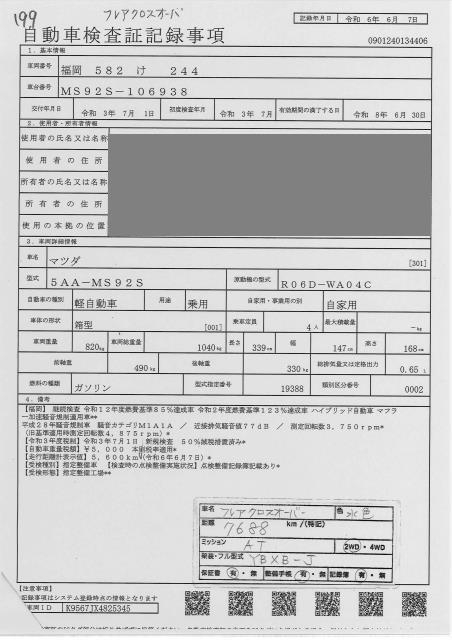 199 フレアクロスオーバ
記録年月日 令和 6年 6月 7日
自動車検査証記録事項
0901240134406
1. 基本情報
車両番号 福岡 582 け 244
車台番号 MS92S-106938
交付年月日 令和 3年 7月 1日 初度検査年月 令和 3年 7月 有効期間の満了する日 令和 8年 6月 30日
2. 使用者・所有者情報
使用者の氏名又は名称
使用者の住所
所有者の氏名又は名称
所有者の住所
使用の本拠の位置
3. 車両詳細情報
車名 マツダ [301]
型式 5AA-MS92S 原動機の型式 R06D-WA04C
自動車の種別 軽自動車 用途 乗用 自家用・事業用の別 自家用
車体の形状 箱型 [001] 乗車定員 4人 最大積載量 -kg
車両重量 820kg 車両総重量 1040kg 長さ 339cm 幅 147cm 高さ 168cm
前軸重 490kg 後軸重 330kg 総排気量又は定格出力 0.65 L
燃料の種類 ガソリン 型式指定番号 19388 類別区分番号 0002
4. 備考
【福岡】 継続検査 令和12年度燃費基準85%達成車 令和2年度燃費基準123%達成車 ハイブリッド自動車 マフラ
ー加速騒音規制適用車**
平成28年騒音規制車 騒音カテゴリM1A1A / 近接排気騒音値77dB / 測定回転数3,750rpm*
(旧基準適用時測定回転数4,875rpm)*
【令和3年度税制】令和3年7月1日 新規検査 50%減税措置済み*
【自動車重量税額】¥5,000 本則税率適用*
【走行距離計表示値】5,600km(令和6年6月7日)*
【受検種別】指定整備車 【検査時の点検整備実施状況】点検整備記録簿記載あり*
【受検形態】指定整備工場**
車名 フレアクロスオーバー 色 水色
距離 7688 km/(特記)
ミッション AT 2WD・4WD
架装・フル型式 YBXB-J
保証書 有・無 整備手帳 有・無 記録簿 有・無
【注意事項】
記載事項はシステム登録時点の情報となります
車両ID K9567JX4825345